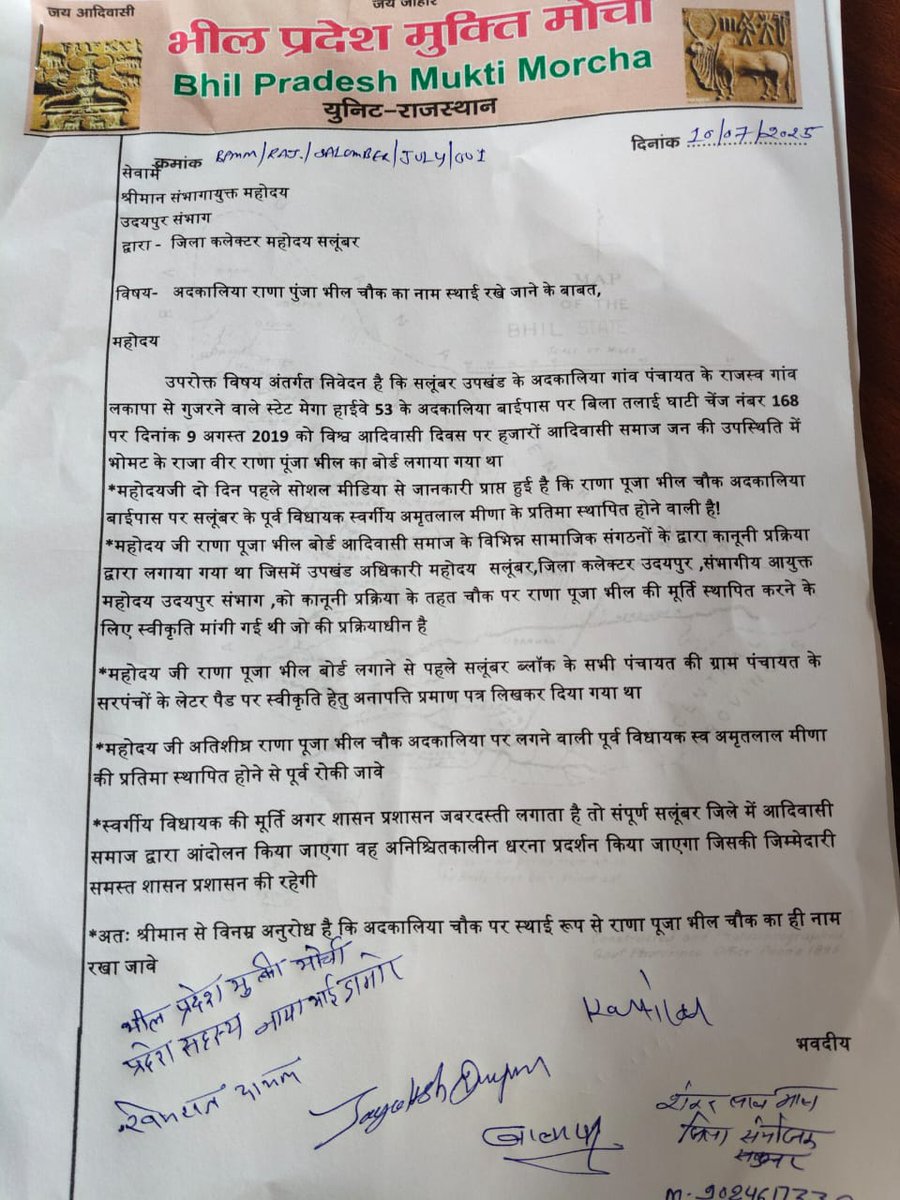 जय आदिवासी
जय जोहार
भील प्रदेश मुक्ति मोर्चा
Bhil Pradesh Mukti Morcha
युनिट-राजस्थान
क्रमांक BPMM/RAJ./SALOMBER/JULY/001
दिनांक 10/07/2025
सेवामें
श्रीमान संभागायुक्त महोदय
उदयपुर संभाग
द्वारा - जिला कलेक्टर महोदय सलूंबर
विषय- अदकालिया राणा पुंजा भील चौक का नाम स्थाई रखे जाने के बाबत,
MAP
OF THE
BHIL STATE
महोदय
उपरोक्त विषय अंतर्गत निवेदन है कि सलूंबर उपखंड के अदकालिया गांव पंचायत के राजस्व गांव
लकापा से गुजरने वाले स्टेट मेगा हाईवे 53 के अदकालिया बाईपास पर बिला तलाई घाटी चेंज नंबर 168
पर दिनांक 9 अगस्त 2019 को विश्व आदिवासी दिवस पर हजारों आदिवासी समाज जन की उपस्थिति में
भोमट के राजा वीर राणा पूंजा भील का बोर्ड लगाया गया था
*महोदयजी दो दिन पहले सोशल मीडिया से जानकारी प्राप्त हुई है कि राणा पूजा भील चौक अदकालिया
बाईपास पर सलूंबर के पूर्व विधायक स्वर्गीय अमृतलाल मीणा के प्रतिमा स्थापित होने वाली है!
*महोदय जी राणा पूजा भील बोर्ड आदिवासी समाज के विभिन्न सामाजिक संगठनों के द्वारा कानूनी प्रक्रिया
द्वारा लगाया गया था जिसमें उपखंड अधिकारी महोदय सलूंबर,जिला कलेक्टर उदयपुर ,संभागीय आयुक्त
महोदय उदयपुर संभाग ,को कानूनी प्रक्रिया के तहत चौक पर राणा पूजा भील की मूर्ति स्थापित करने के
लिए स्वीकृति मांगी गई थी जो की प्रक्रियाधीन है
*महोदय जी राणा पूजा भील बोर्ड लगाने से पहले सलूंबर ब्लॉक के सभी पंचायत की ग्राम पंचायत के
सरपंचों के लेटर पैड पर स्वीकृति हेतु अनापत्ति प्रमाण पत्र लिखकर दिया गया था
*महोदय जी अतिशीघ्र राणा पूजा भील चौक अदकालिया पर लगने वाली पूर्व विधायक स्व अमृतलाल मीणा
की प्रतिमा स्थापित होने से पूर्व रोकी जावे
*स्वर्गीय विधायक की मूर्ति अगर शासन प्रशासन जबरदस्ती लगाता है तो संपूर्ण सलूंबर जिले में आदिवासी
समाज द्वारा आंदोलन किया जाएगा वह अनिश्चितकालीन धरना प्रदर्शन किया जाएगा जिसकी जिम्मेदारी
समस्त शासन प्रशासन की रहेगी
*अतः श्रीमान से विनम्र अनुरोध है कि अदकालिया चौक पर स्थाई रूप से राणा पूजा भील चौक का ही नाम
रखा जावे
भील प्रदेश मुक्ती मोर्चा
प्रदेश सदस्य
भवदीय
जिला संयोजक